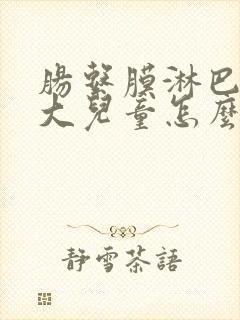 腸繫膜淋巴
大兒童怎麼
靜雪茶語